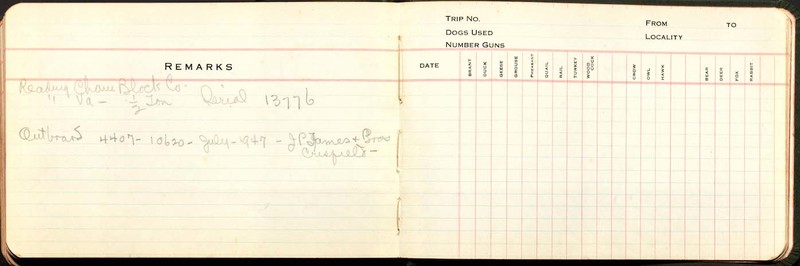 REMARKS
Reading Chain Block Co-
" Pa - 1/2 Ton Serial 13776
Outboard 4407- 10620- July- 1947 - J P James + Bros
Crisfield -
TRIP NO. FROM TO
DOGS USED LOCALITY
NUMBER GUNS
DATE BRANT DUCK GEESE GROUSE PHEASANT QUAIL RAIL TURKEY WOOD COCK CROW OWL HAWK BEAR DEER FOX RABBIT